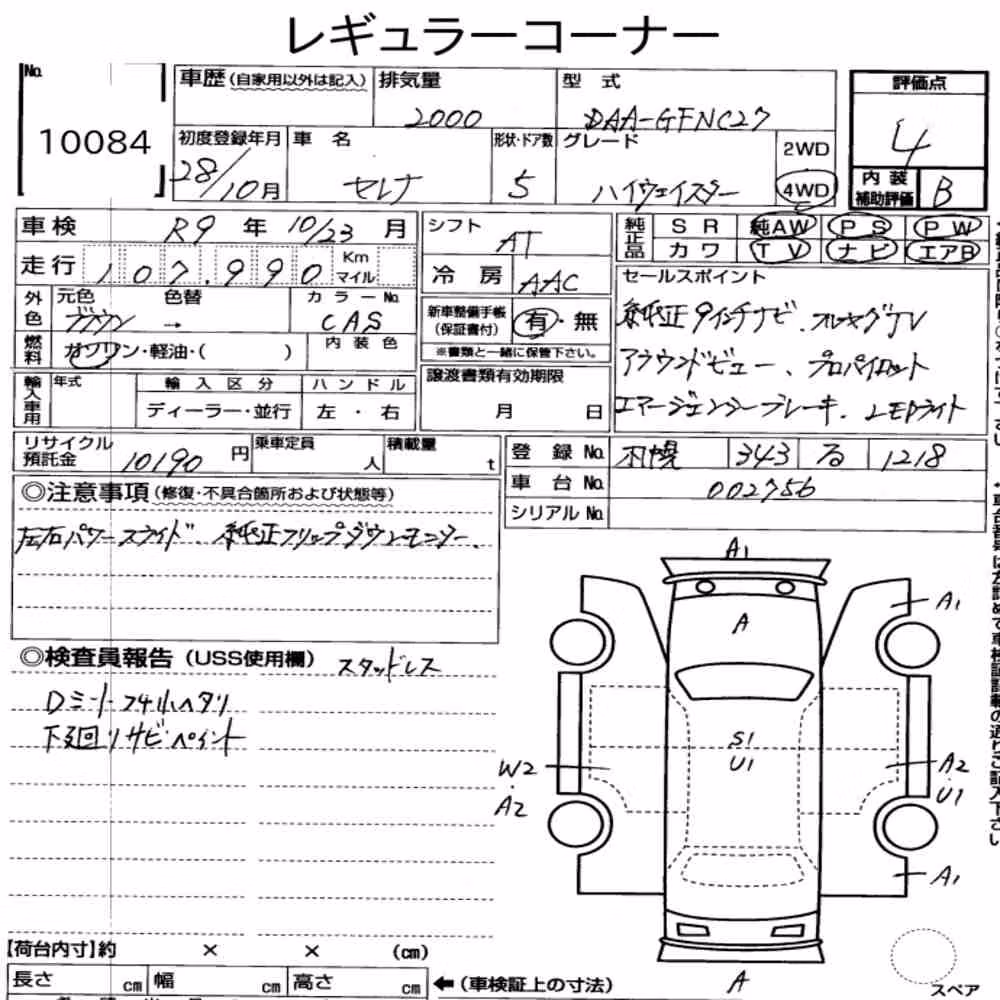 レギュラーコーナー
No. 10084
車歴 (自家用以外は記入)
排気量 2000
型式 DAA-GFNC27
評価点 4
内装補助評価 B
初度登録年月 28/10月
車名 セレナ
形状・ドア数 5
グレード ハイウェイスター
2WD
4WD
車検 R9年 10/23月
走行 107,990 Km マイル
シフト AT
冷房 AAC
純正品 SR 純AW PS PW
カワ TV ナビ エアB
外色 元色 色替 カラーNo.
→ CAS
燃料 ガソリン・軽油・( )
内装色
新車整備手帳(保証書付) 有・無
※書類と一緒に保管下さい。
セールスポイント
純正9インチナビ、フルセグTV
アラウンドビュー、プロパイロット
エマージェンシーブレーキ、LEDライト
輸入車用 年式 輸入区分 ハンドル
ディーラー・並行 左・右
譲渡書類有効期限
月 日
リサイクル預託金 10190円
乗車定員 人
積載量 t
登録No. 札幌 343 る 1218
車台No. 002756
シリアルNo.
◎注意事項 (修復・不具合箇所および状態等)
左右パワースライド、純正フリップダウンモニター、
◎検査員報告 (USS使用欄) スタッドレス
Dシート
下回りサビ ペイント
A1
A
A1
S1
U1
W2
A2
A2
U1
A1
A
【荷台内寸】約 × × (cm)
長さ cm 幅 cm 高さ cm
←(車検証上の寸法)
スペア